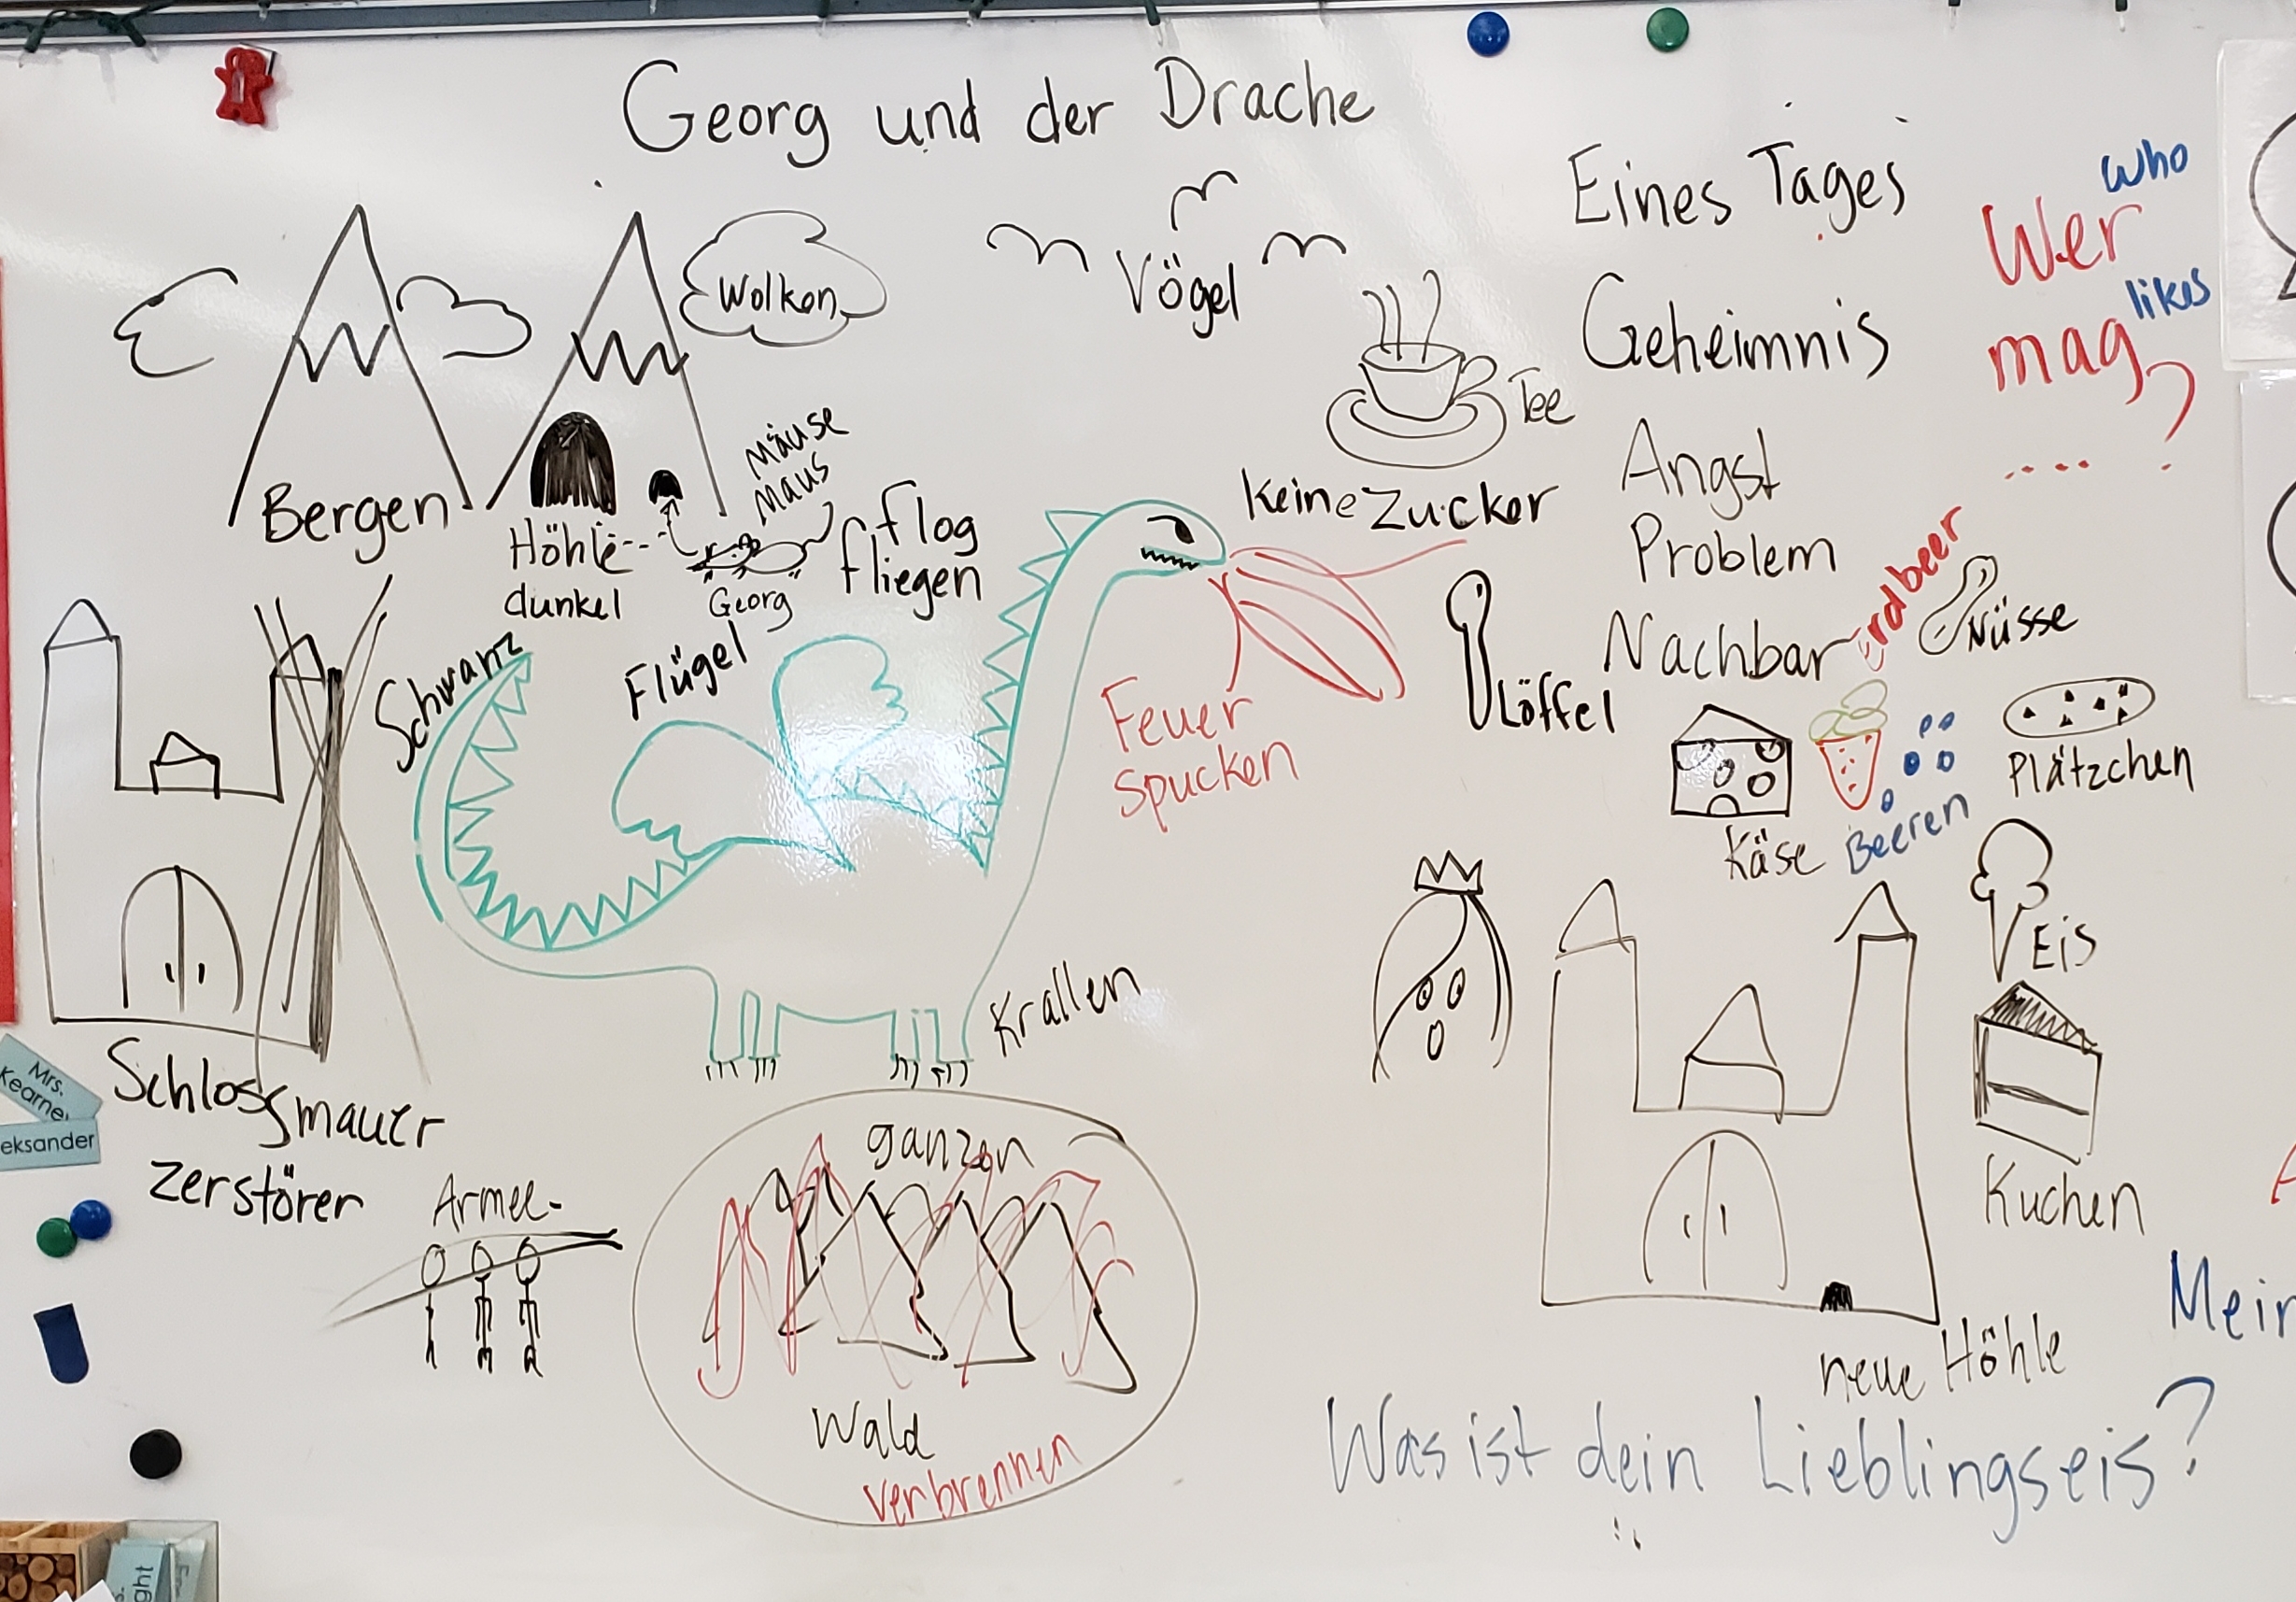 Georg und der Drache
Eines Tages
who
Wer
likes
mag
.... ?
Geheimnis
Angst
Problem
Nachbar
Wolken
Vögel
Tee
keine Zucker
Bergen
Höhle
dunkel
Mäuse
Maus
Georg
flog
fliegen
Schwanz
Flügel
Feuer
spucken
Löffel
Erdbeer
Nüsse
Käse
Beeren
Plätzchen
Eis
Kuchen
Krallen
Schlossmauer
zerstören
Armee
ganzen
Wald
verbrennen
neue Höhle
Was ist dein Lieblingseis?
Mein
Mrs.
Kearne
eksander
ght